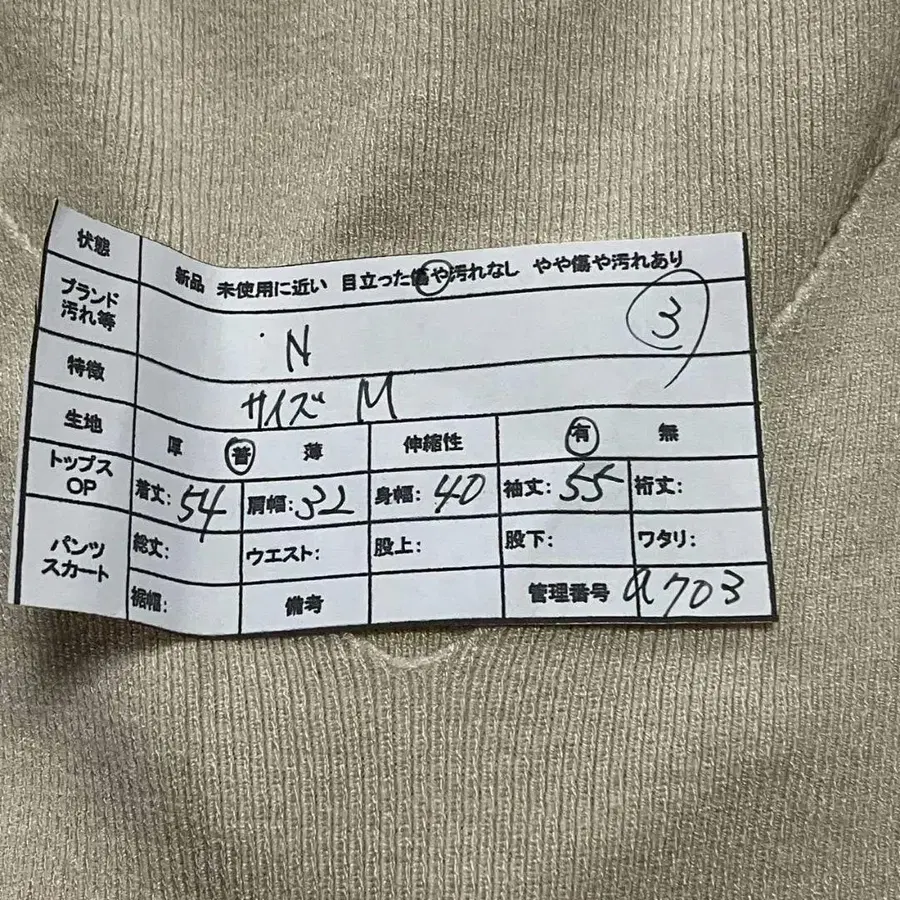 状態 新品 未使用に近い 目立った傷や汚れなし やや傷や汚れあり
ブランド
汚れ等 N ③
特徴 サイズ M
生地 厚 普 薄 伸縮性 有 無
トップス
OP 着丈:54 肩幅:32 身幅:40 袖丈:55 裄丈:
パンツ
スカート 総丈: ウエスト: 股上: 股下: ワタリ:
裾幅: 備考 管理番号 a703